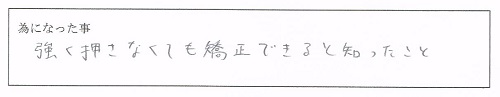 為になった事
強く押さなくても矯正できると知ったこと